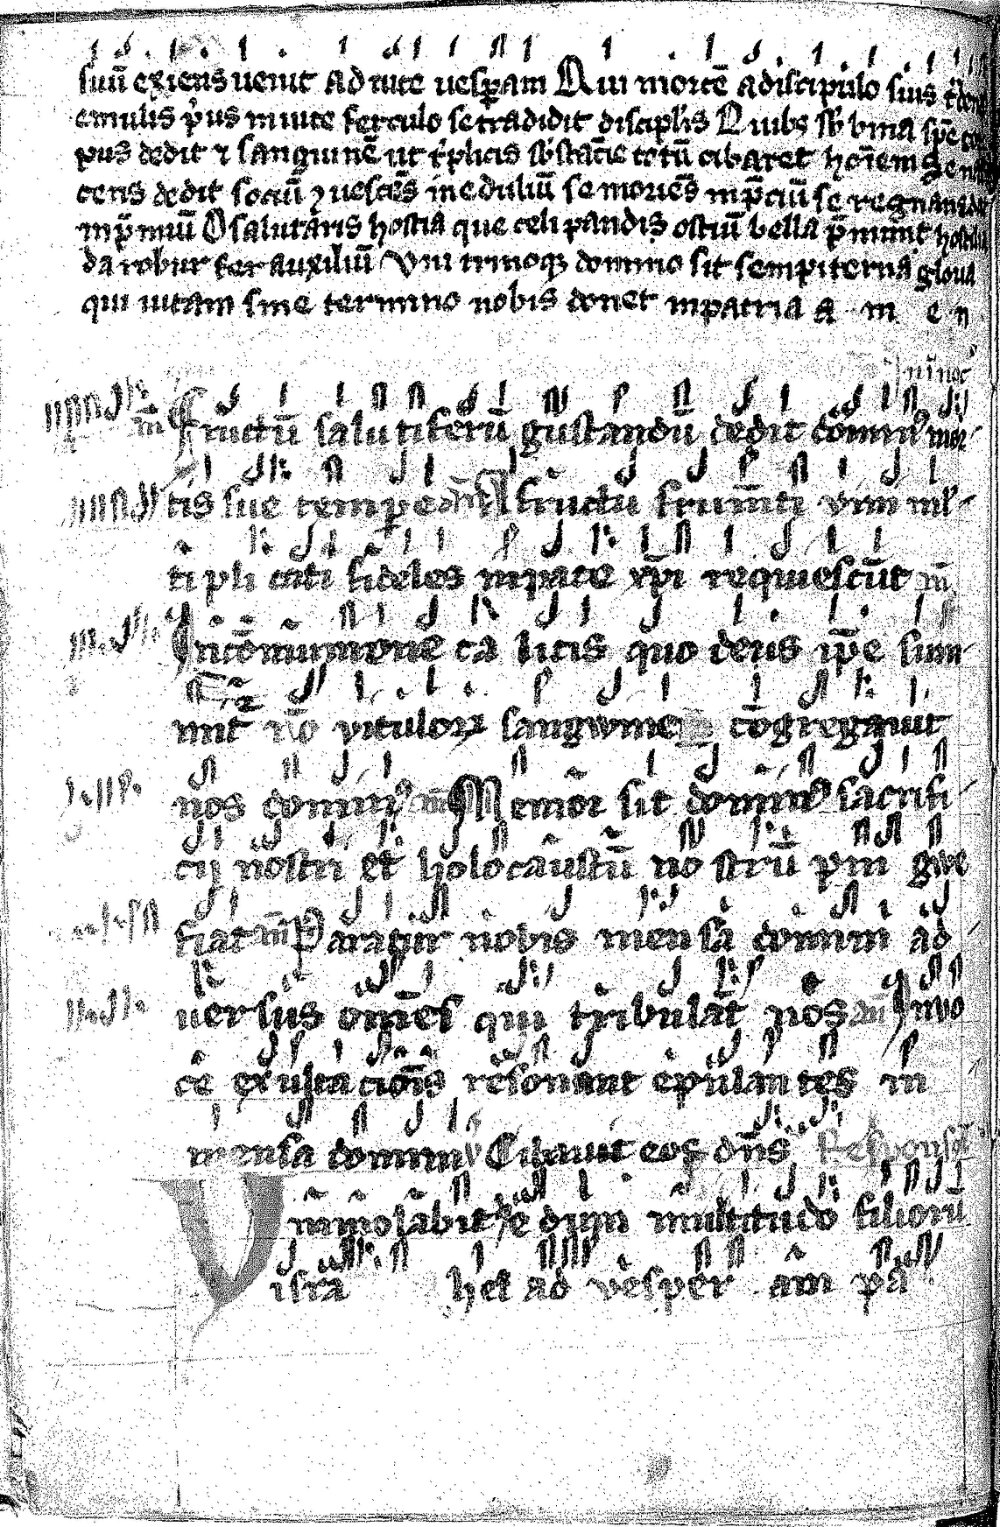 suū exiens uenit ad uite uesp̄am Qui mortē a discipulo suis tᵈend
emulis p̓us in uite ferculo se tradidit disciplis Quibꝫ sb̄ bina spē cor
pus dedit ⁊ sanguinē ut dplicis sb̄stācie totū cibaret hoīem Se nas
cens dedit sociū ꝯuescēs in eduliū se moriēs in p̄ciū se regnans dat
in p̄miū O salutaris hostia que celi pandis ostiū bella p̄munt hostilia
da robur fer auxiliū Vni trinoqꝫ domino sit sempiterna gloria
qui uitam sine termino nobis donet in patria a m e n
in noc̄
Fructū salutiferū gustandū dedit domin᷒ mor
tis sue tempore añ A fructu frumēti vini ml̄
tipli cati fideles in pace xp̄i requiescūt añ
In cōmunione calicis quo deus ip̄e sum
mit᷑ nō vituloꝝ sangwine cōgregauit
nos domin᷒ añ Memor sit domin᷒ sacrifi
cij nostri et holocaustū nostrū pin gwe
fiat añ Paratur nobis mensa domini ad
uersus om̄es qui tribulāt nos añ In uo
ce exultacōis resonant epulantes in
mensa domini v Cibauit eos dn̄s Respons
Immolabit he dum multitudo filiorū
isra hel ad vesper am pa